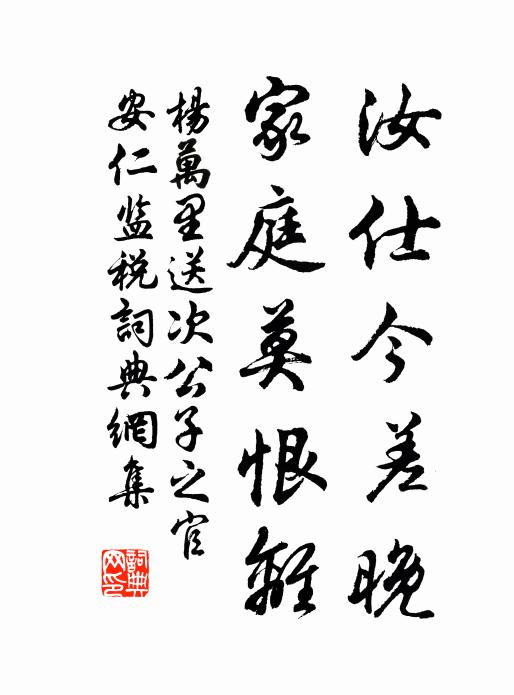 汝仕今差晚
家庭莫恨離
楊萬里送次公子之官
安仁监税詞典網集
詞典网印